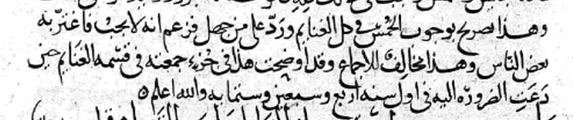 وهذا تصريح بوجوب الخمس في كل الغنايم ورد على من جهل فزعم انه لا يجب فاغتر به
بعض الناس وهذا مخالف للاجماع وقد اوضحت هذا في جزء جمعته في قسمة الغنايم حين
دعت الضرورة اليه في اول سنة اربع وسبعين وستماية والله اعلم